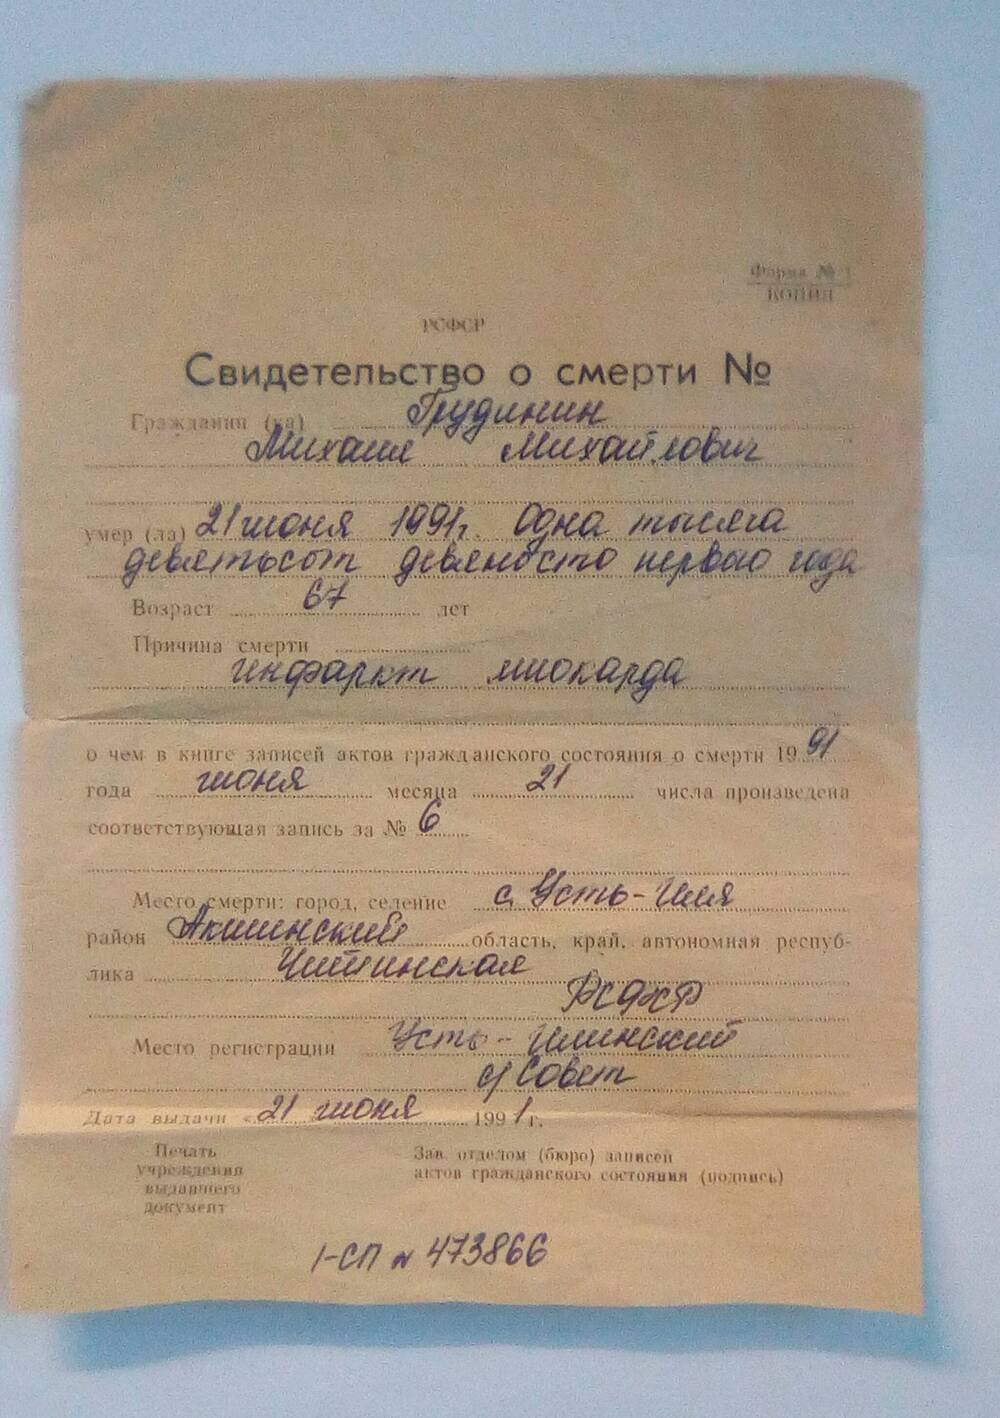 Форма № 1
КОПИЯ
РСФСР
Свидетельство о смерти №
Гражданин (ка) Грудинин
Михаил Михайлович
умер (ла) 21 июня 1991г. Одна тысяча
девятьсот девяносто первого года
Возраст 67 лет
Причина смерти
инфаркт миокарда
о чем в книге записей актов гражданского состояния о смерти 1991
года июня месяца 21 числа произведена
соответствующая запись за № 6
Место смерти: город, селение с. Усть-Иля
район Акшинский область, край, автономная респуб-
лика Читинская
РСФСР
Место регистрации Усть-Илинский
с/Совет
Дата выдачи «21 июня 1991г.
Печать
учреждения
выдавшего
документ
Зав. отделом (бюро) записей
актов гражданского состояния (подпись)
I-СП № 473866